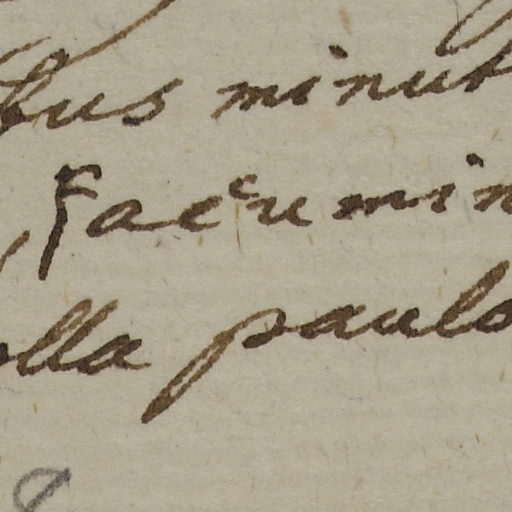 bus minut
, Facumin
olla paulo